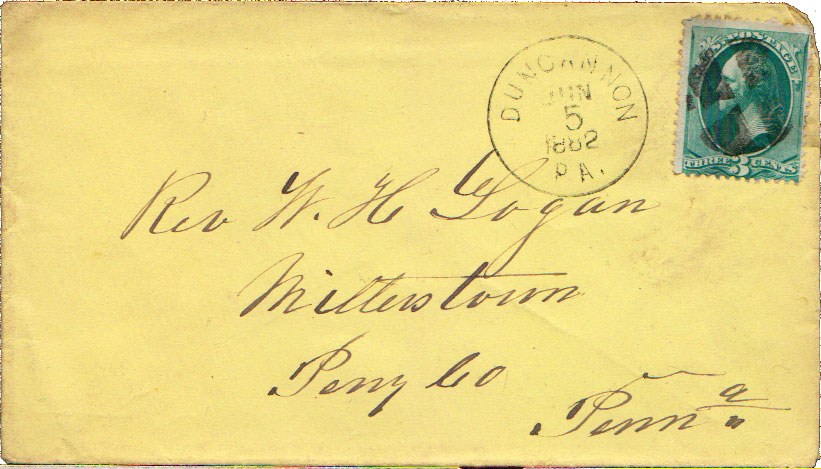 DUNCANNON
JUN
5
1882
PA.
U.S. POSTAGE
THREE 3 CENTS
Rev W. H Logan
Millerstown
Perry Co
Penna